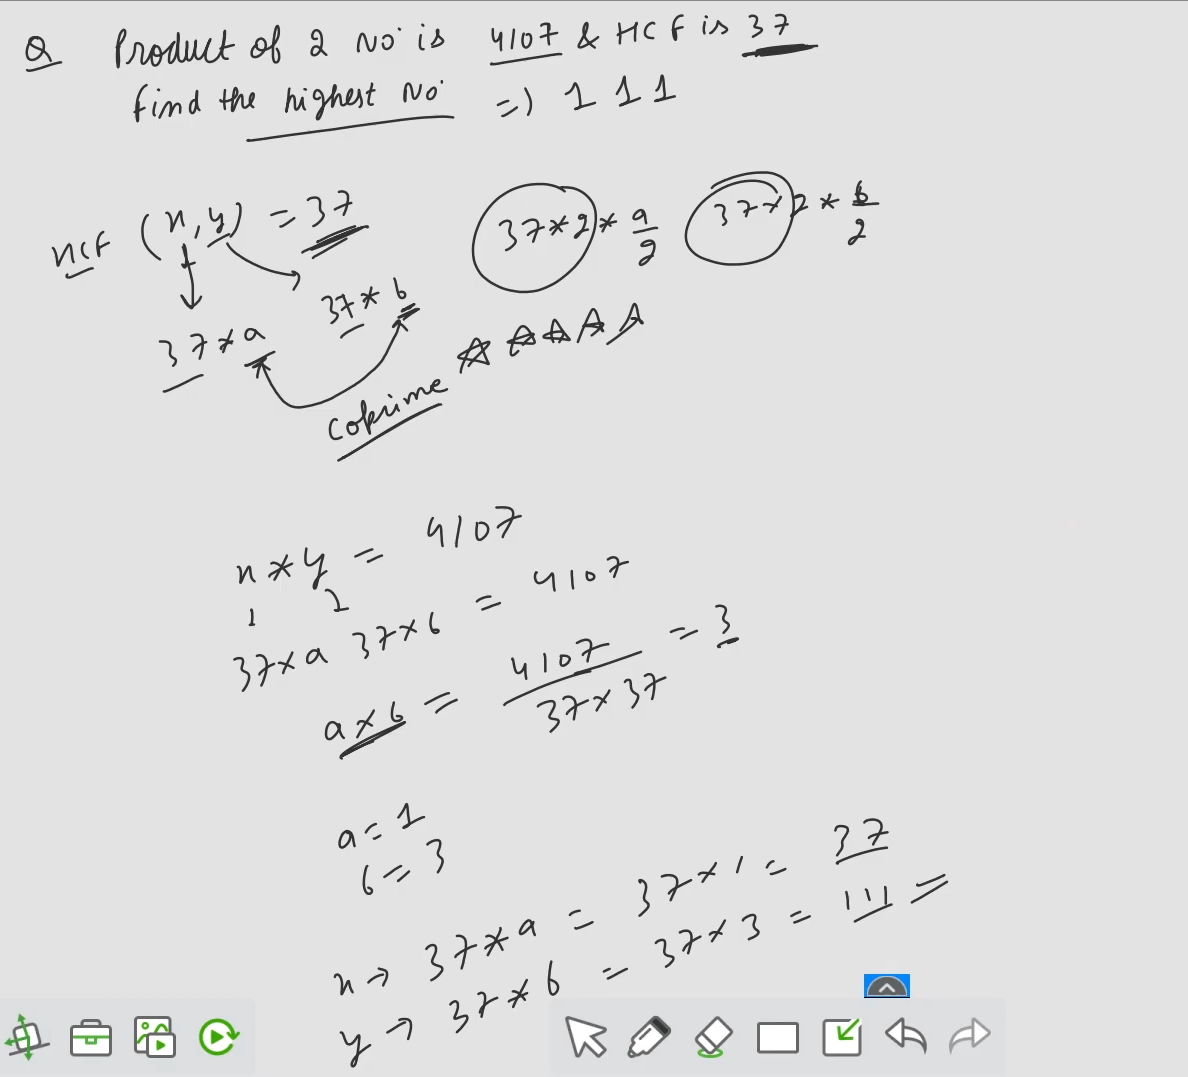 Q Product of 2 No is 4107 & HCF is 37
find the highest No => 111
HCF (x,y) = 37
37*2*a/2 37*2*b/2
37*a 37*b
Coprime
x*y = 4107
1 2
37×a 37×b = 4107
a×b = 4107/37×37 = 3
a=1
b=3
x → 37*a = 37×1 = 37
y → 37*b = 37×3 = 111 =